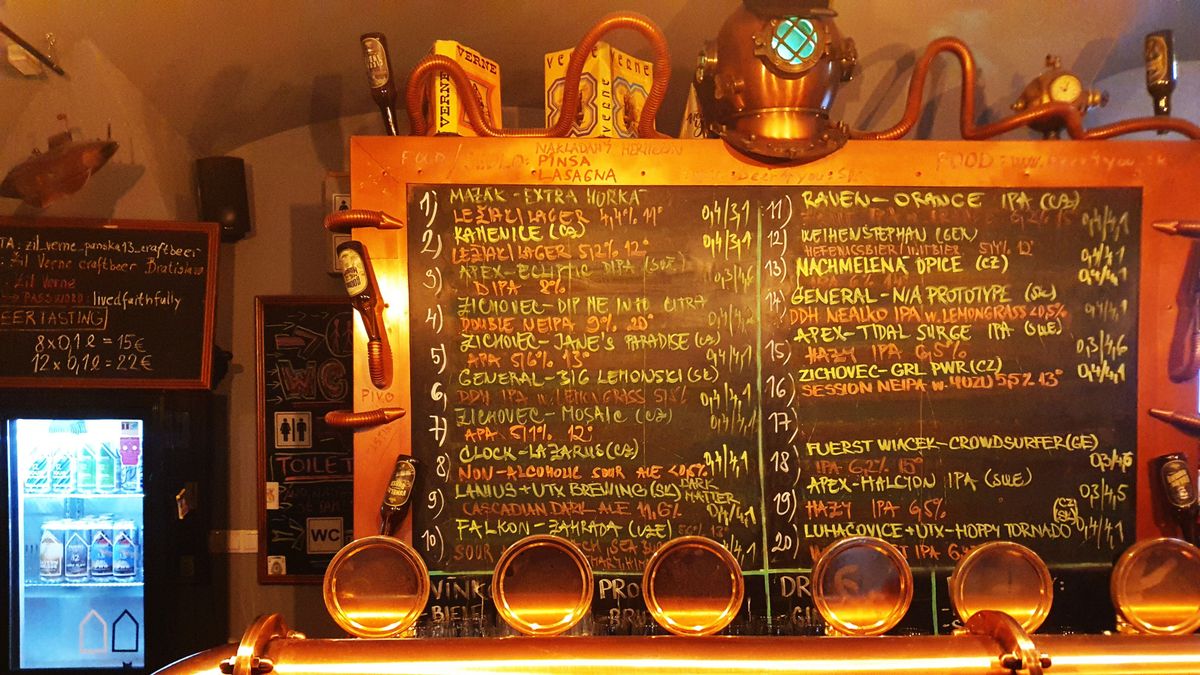 VERNE
VERNE
verne
verne
NAKLADANÝ HERMELÍN
FOOD
PINSA
LASAGNA
FOOD: www.beer4you.sk
TA: zil_verne_panska13_craftbeer
Zil Verne craftbeer Bratislava
Zil Verne
PASSWORD: livedfaithfully
BEER TASTING
8x0,1ℓ = 15€
12x0,1ℓ = 22€
WC
TOILET
WC
PIVO
1) MAZÁK - EXTRA HORKÁ
LEŽIACI LAGER 4,4% 11° 0,4/3,1
2) KAMENICE (CZ)
LEŽIACI LAGER 5,2% 12° 0,4/3,1
3) APEX - ECLIPTIC DIPA (SWE)
DIPA 8% 0,3/4,6
4) ZICHOVEC - DIP ME INTO CITRA
DOUBLE NEIPA 9% 20°
5) ZICHOVEC - JANE'S PARADISE (CZ)
APA 5,6% 13° 0,4/4,1
6) GENERAL - 316 LEMONSKI (SK)
DDH IPA w. LEMONGRASS 5,5% 0,4/4,1
7) ZICHOVEC - MOSAIC (CZ)
APA 5,1% 12° 0,4/4,1
8) CLOCK - LAZARUS (CZ)
NON-ALCOHOLIC SOUR ALE <0,5% 0,4/4,1
9) LANIUS + UTX BREWING (SK) DARK MATTER
CASCADIAN DARK ALE 11,6% 0,4/4,1
10) FALKON - ZAHRADA (CZE)
SOUR
11) RAVEN - ORANGE IPA (CZ)
0,4/4,1
12) WEIHENSTEPHAN (GER)
HEFEWEISSBIER/WITBIER 5,4% 12° 0,4/4,1
13) NACHMELENÁ OPICE (CZ)
0,4/4,1
14) GENERAL - N/A PROTOTYPE (SK)
DDH NEALKO IPA w. LEMONGRASS <0,5% 0,4/4,1
15) APEX - TIDAL SURGE IPA (SWE)
HAZY IPA 6,5% 0,3/4,6
16) ZICHOVEC - GRL PWR (CZ)
SESSION NEIPA w. YUZU 5,5% 13° 0,4/4,1
17)
18) FUERST WIACEK - CROWDSURFER (GE)
IPA 6,2% 15° 0,3/4,5
19) APEX - HALCYON IPA (SWE)
HAZY IPA 6,5% 0,3/4,5
20) LUHAČOVICE + UTX - HOPPY TORNADO (CZ SK)
0,4/4,1
VÍNKO
BIELE
PRO
DR